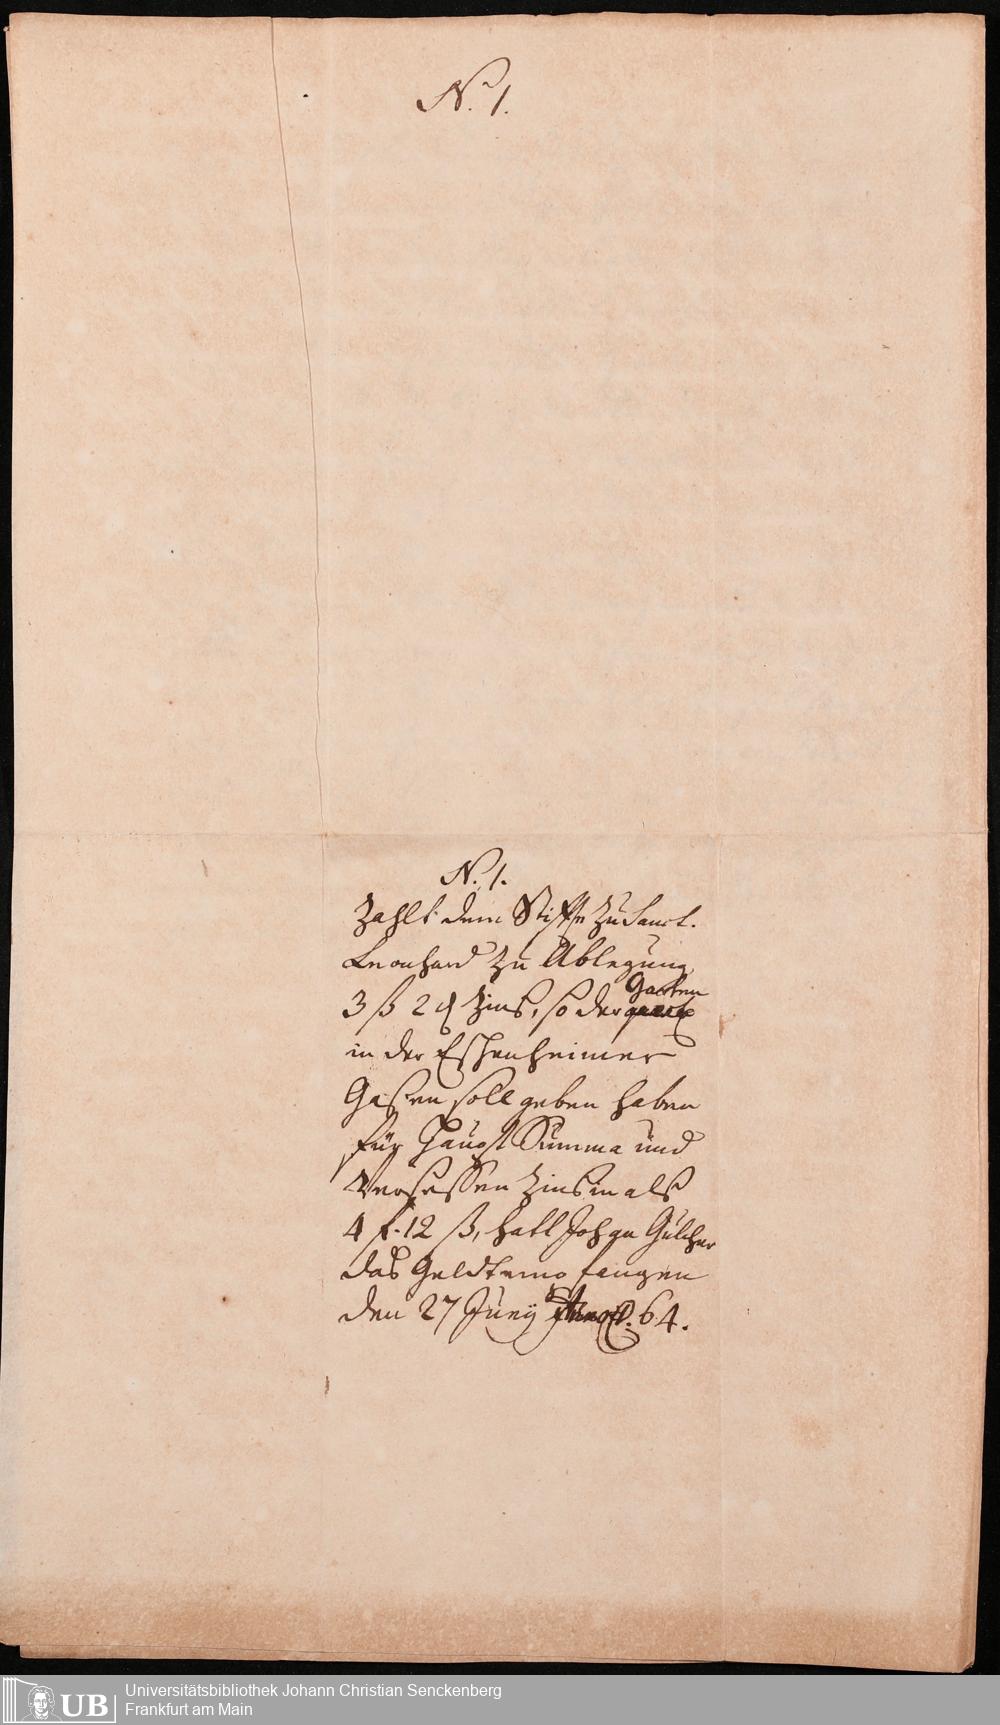 N. 1.
N. 1.
Zahlt dem Stifft zu Sanct.
Leonhard zu Ablegung
3 ß 2 Zins, so der Garten
in der Eschenheimer
Gaßen soll geben haben
für Haupt Summa und
Verseßen Zins in alß
4 f. 12 ß, hatt Johan
das Geldt empfangen
den 27 Juny 64.
UB
Universitätsbibliothek Johann Christian Senckenberg
Frankfurt am Main